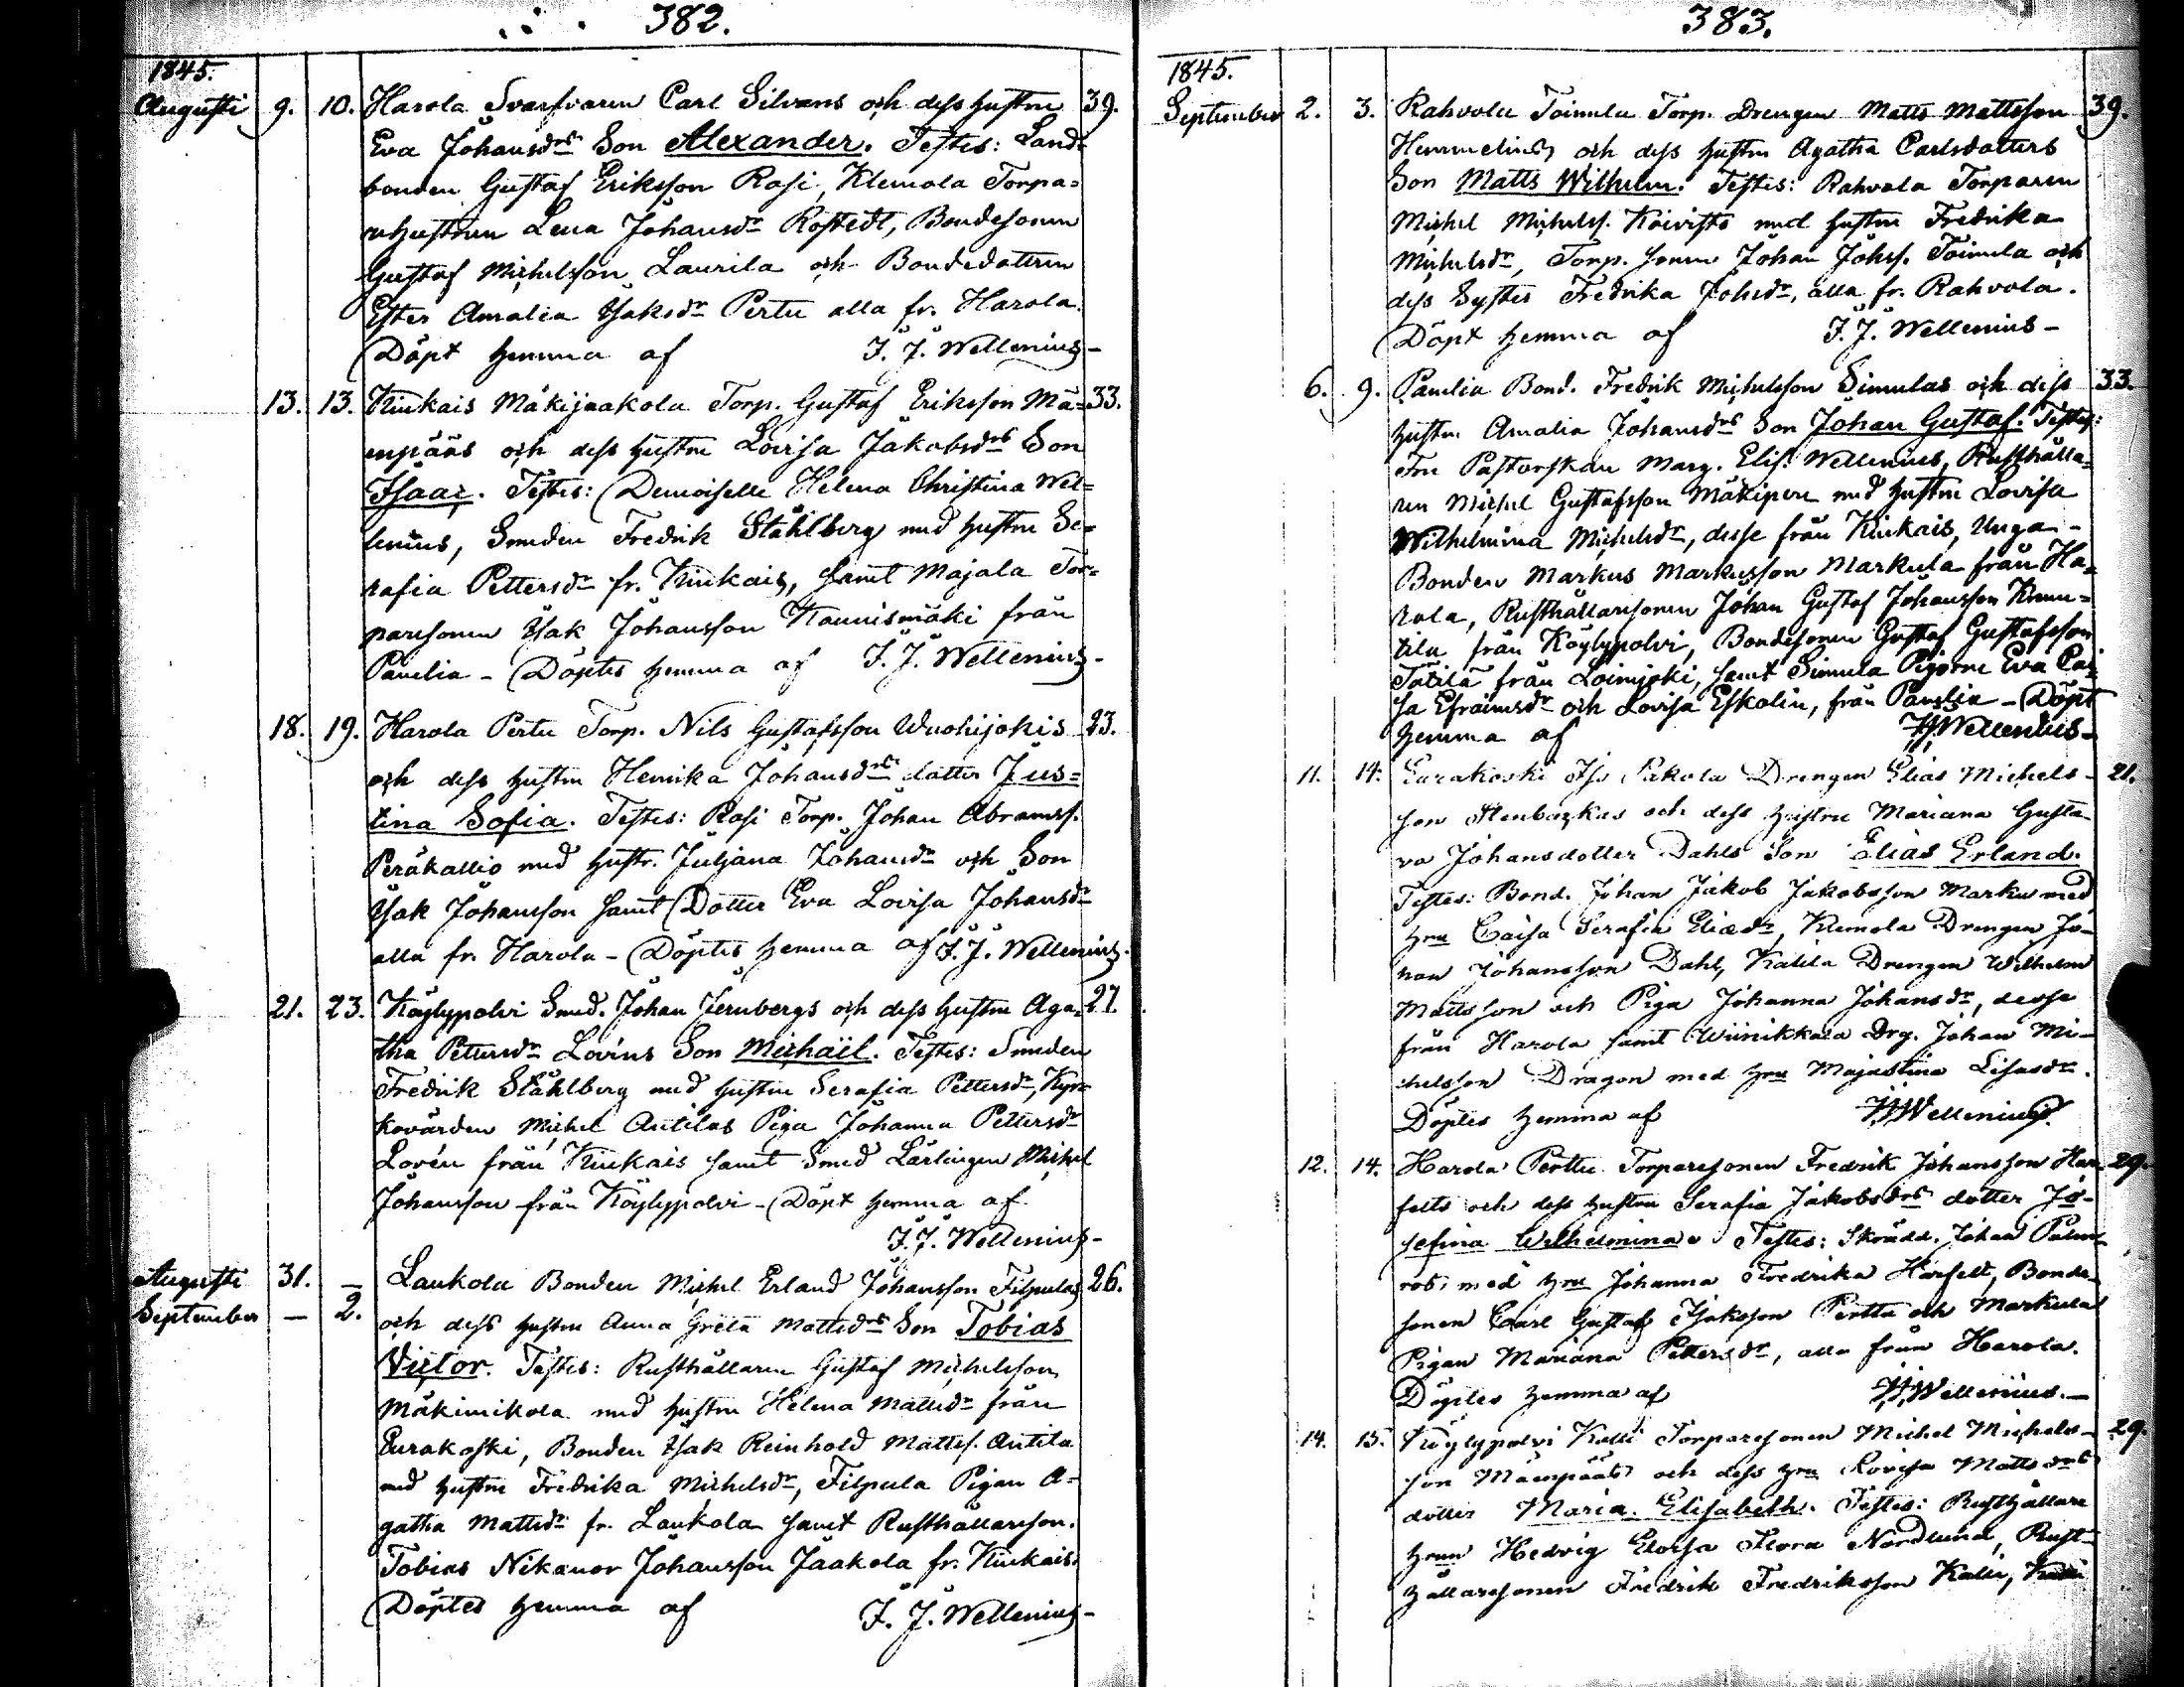 382.
1845.
Augusti 9. 10. Harola Svarfvaren Carl Silvans och dess hustru 39.
Eva Johansdrs Son Alexander. Testes: Land-
bonden Gustaf Eriksson Rasi, Klemola Torpa=
rehustrun Lena Johansdr Rostedt, Bondesonen
Gustaf Michelsson Laurila och Bondedottren
Ester Amalia Isaksdr Pertu alla fr. Harola.
Döpt hemma af J. J. Wellenius-
13. 13. Kiukais Mäkijaakola Torp. Gustaf Eriksson Mä= 33.
enpääs och dess hustru Lovisa Jakobsdrs Son
Isaac. Testes: Demoiselle Helena Christina Wel=
lenius, Smeden Fredrik Ståhlberg med hustru Se=
rafia Pettersdr fr. Kiukais, samt Majala Tor=
paresonen Isak Johansson Kaunismäki från
Panelia - Döptes hemma af J. J. Wellenius-
18. 19. Harola Pertu Torp. Nils Gustafsson Wuohijokis 23.
och dess hustru Henrika Johansdrs dotter Jus=
tina Sofia. Testes: Rasi Torp. Johan Abramss.
Peräkallio med hustr. Juljana Johansdr och Son
Isak Johansson samt Dotter Eva Lovisa Johansdr
alla fr. Harola - Döptes hemma af J. J. Wellenius.
21. 23. Köylypolvi Smed. Johan Jernbergs och dess hustru Aga= 27.
tha Pettersdr Lovéns Son Michaël. Testes: Smeden
Fredrik Ståhlberg med hustru Serafia Pettersdr, Kyr=
kovärden Michel Antilas Piga Johanna Pettersdr
Lovén från Kiukais samt Smed Lärlingen Michel
Johansson från Köylypolvi - Döpt hemma af
J. J. Wellenius-
Augusti 31. — Laukola Bonden Michel Erland Johansson Filpulas 26.
September — 2. och dess hustru Anna Greta Mattsdrs Son Tobias
Victor. Testes: Rusthållaren Gustaf Michelsson
Mäkimikola med hustru Helena Mattsdr från
Eurakoski, Bonden Isak Reinhold Mattss. Antila
med hustru Fredrika Michelsdr, Filpula Pigan A=
gatha Mattsdr fr. Laukola samt Rusthållareson.
Tobias Nikanor Johansson Jaakola fr. Kiukais.
Döptes hemma af J. J. Wellenius-
383.
1845.
September 2. 3. Rahvola Toimula Torp. Drengen Matts Mattsson 39.
Hemmelins och dess hustru Agatha Carlsdotters
Son Matts Wilhelm. Testes: Rahvola Torparen
Michel Michelss. Koivisto med hustru Fredrika
Michelsdr, Torp. sonen Johan Johss. Toimula och
dess Syster Fredrika Johsdr, alla fr. Rahvola.
Döpt hemma af J. J. Wellenius-
6. 9. Panelia Bond. Fredrik Michelsson Simulas och dess 33.
hustru Amalia Johansdrs Son Johan Gustaf. Testes:
Fru Pastorskan Marg. Elis. Wellenius, Rusthålla=
ren Michel Gustafsson Mäkipere med hustru Lovisa
Wilhelmina Michelsdr, desse från Kiukais, Unga-
Bonden Markus Markusson Markula från Ha=
rola, Rusthållaresonen Johan Gustaf Johansson
tila från Köylypolvi, Bondesonen Gustaf Gustafsson
Tätilä från Loimjoki, samt Simula Pigorne Eva Caj=
sa Efraimsdr och Lovisa Eskolin, från Panelia - Döpt
hemma af JJWellenius-
11. 14. Eurakoski Pakola Drengen Elias Michels- 21.
son Stenbackas och dess hustru Mariana Gusta-
va Johansdotter Dahls Son Elias Erland.
Testes: Bond. Johan Jakob Jakobsson Marku med
hru Caisa Serafia Eliædr, Klemola Drengen Jo-
han Johansson Dahl, Katila Drengen Wilhelm
Mattsson och Piga Johanna Johansdr, desse
från Harola samt Wiinikkala Drg. Johan Mi-
chelsson Dragon med hru Majastina Lisasdr.
Döptes hemma af JJWellenius.
12. 14. Harola Perttu Torparesonen Fredrik Johansson Har- 29.
felts och dess hustru Serafia Jakobsdrs dotter Jo-
sefina Wilhelmina. Testes: Skrädd. Johan Palm-
ros, med hru Johanna Fredrika Harfelt, Bonde-
sonen Carl Gustaf Isaksson Perttu och Markula
Pigan Mariana Pettersdr, alla från Harola.
Döptes hemma af JJWellenius.-
14. 15. Köylypolvi Kalli Torparesonen Michel Michels- 29.
son Mäenpääs och dess hru Lovisa Mattsdrs
dotter Maria Elisabeth. Testes: Rusthållare
hrun Hedvig Lovisa Flora Nordlund, Rust-
hållaresonen Fredrik Fredriksson Kalli, Kalli